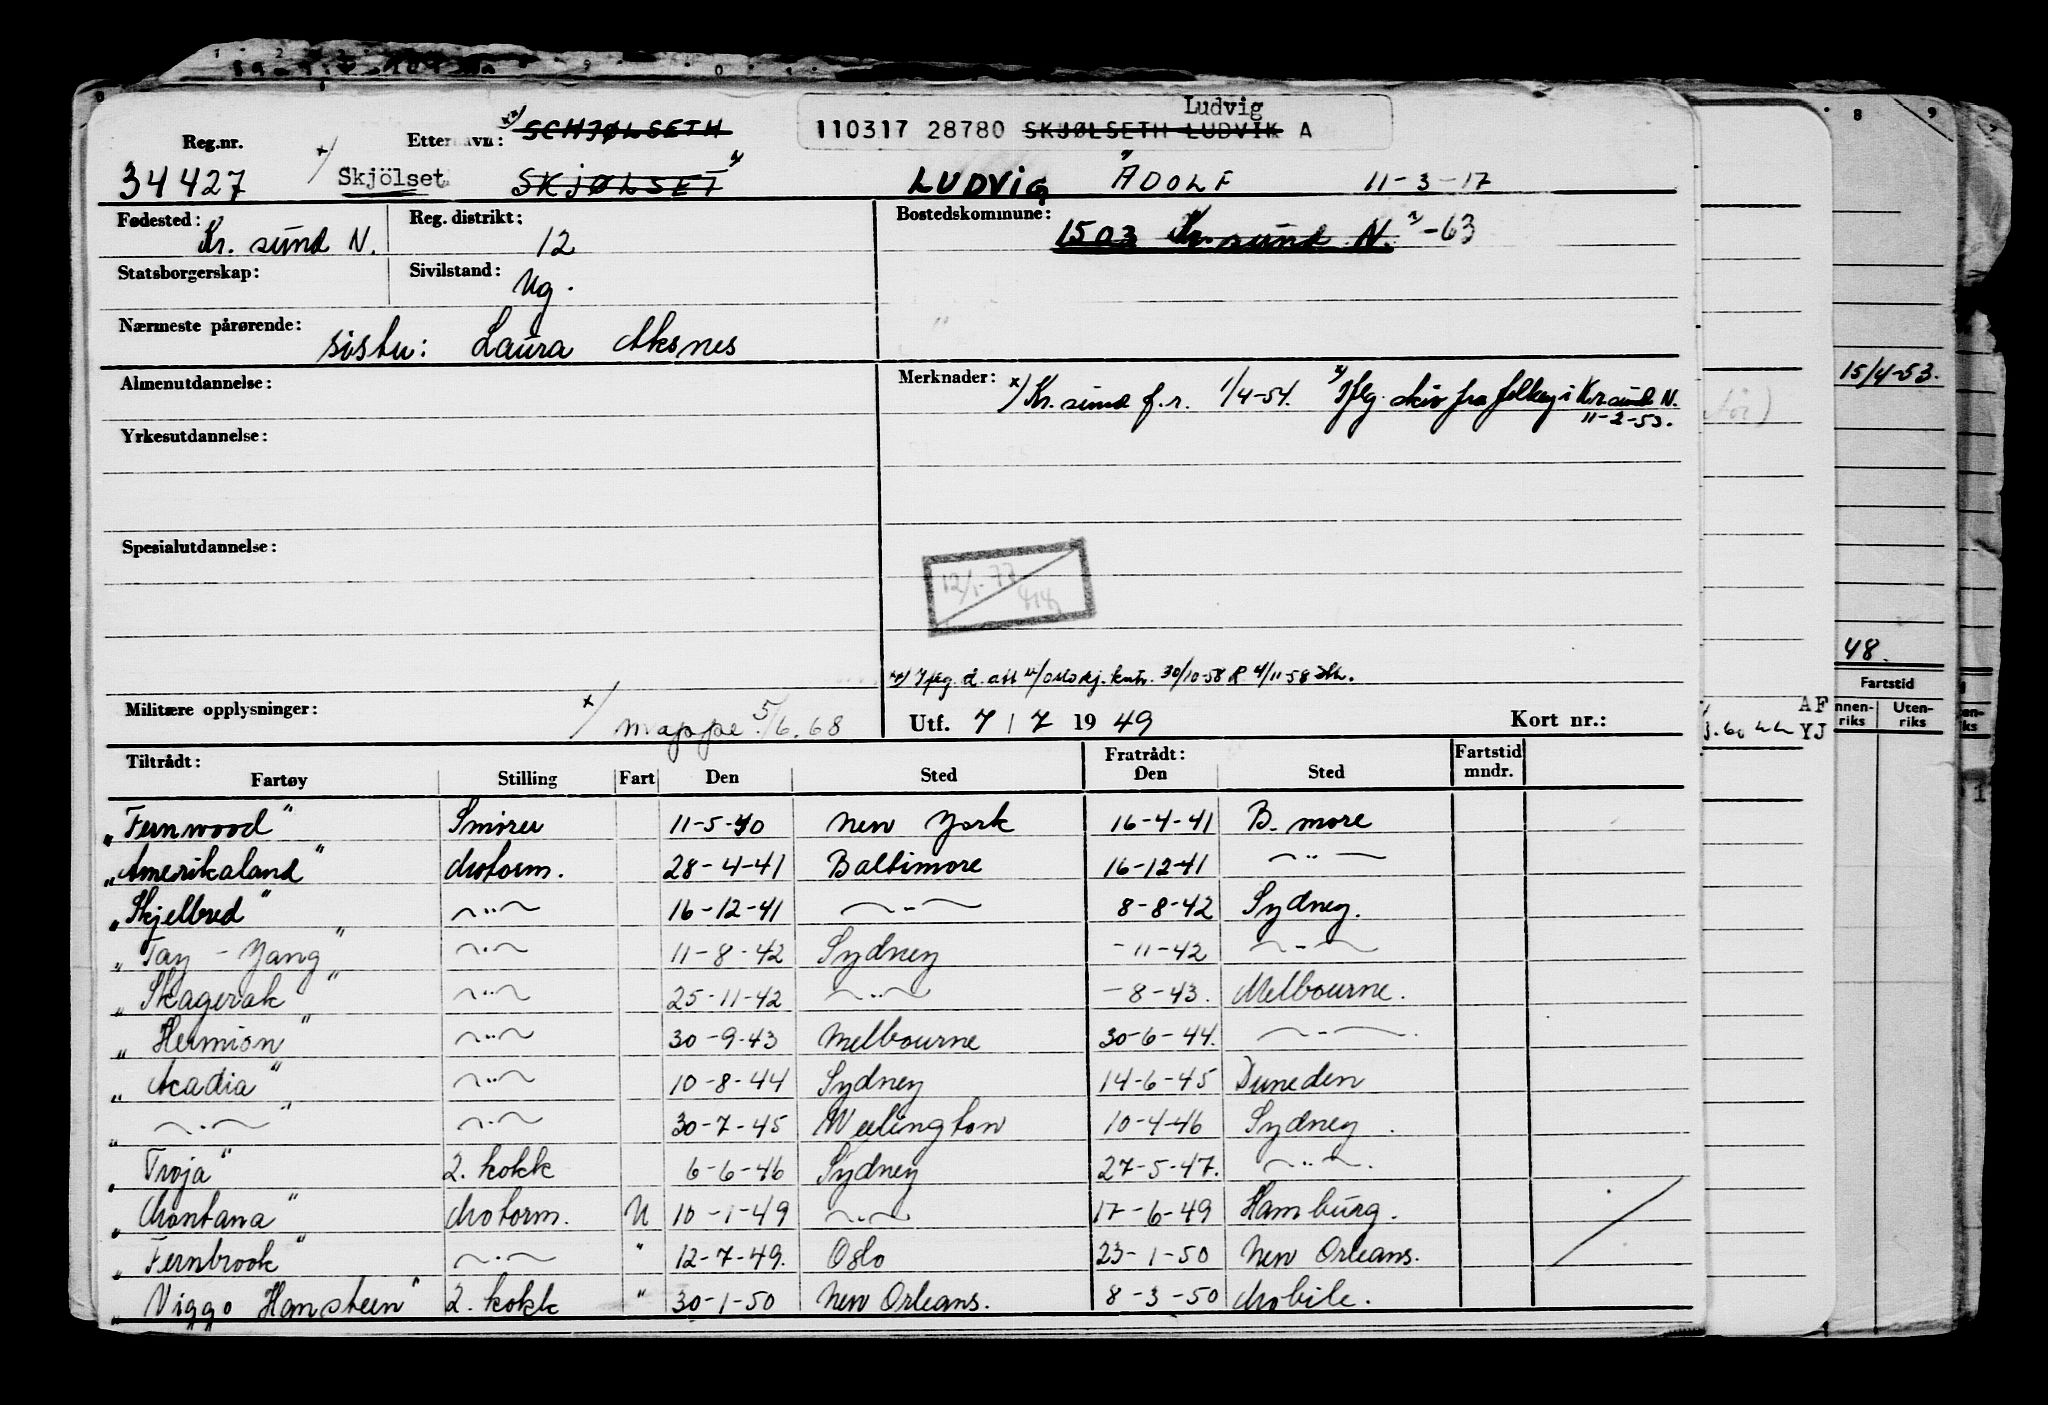 Ludvig
110317 28780 SKJØLSETH LUDVIK A
Reg.nr. Etternavn: SCHJØLSETH
34427 x/ Skjölset SKJØLSET LUDVIG ADOLF 11-3-17
Fødested: Reg. distrikt: Bostedskommune:
Kr. sund N. 12 1503 Kr. sund N. -63
Statsborgerskap: Sivilstand:
Ug.
Nærmeste pårørende:
Laura Aksnes
Almenutdannelse: Merknader: x/ Kr. sund f.r. 1/4-54. skiv fra i Kr sund N.
11-2-53.
Yrkesutdannelse:
Spesialutdannelse:
12/1-77
30/10-58 4/11-58
Militære opplysninger: x/ mappe 5/6.68 Utf. 7 / 7 1949 Kort nr.:
Tiltrådt: Fratrådt: Fartstid
Fartøy Stilling Fart Den Sted Den Sted mndr.
"Fernwood" Smører 11-5-40 New York 16-4-41 B. more
"Amerikaland" Motorm. 28-4-41 Baltimore 16-12-41 — " —
"Skjelbred" — " — 16-12-41 — " — 8-8-42 Sydney.
"Tay - Yang" — " — 11-8-42 Sydney -11-42 — " —
"Skagerak" — " — 25-11-42 — " — -8-43. Melbourne.
"Hermion" — " — 30-9-43 Melbourne 30-6-44. — " —
"Acadia" — " — 10-8-44 Sydney 14-6-45 Duneden
" — " — " — " — 30-7-45 Wellington 10-4-46 Sydney.
"Troja" 2. kokk 6-6-46 Sydney 27-5-47. — " —.
"Montana" Motorm. U 10-1-49 — " — 17-6-49 Hamburg.
"Fernbrook" — " — " 12-7-49. Oslo 23-1-50 New Orleans.
"Viggo Hansteen" 2. kokk " 30-1-50 New Orleans. 8-3-50 Mobile.
8 9
15/4-53.
48.
Fartstid
Uten-
riks
AF
YJ